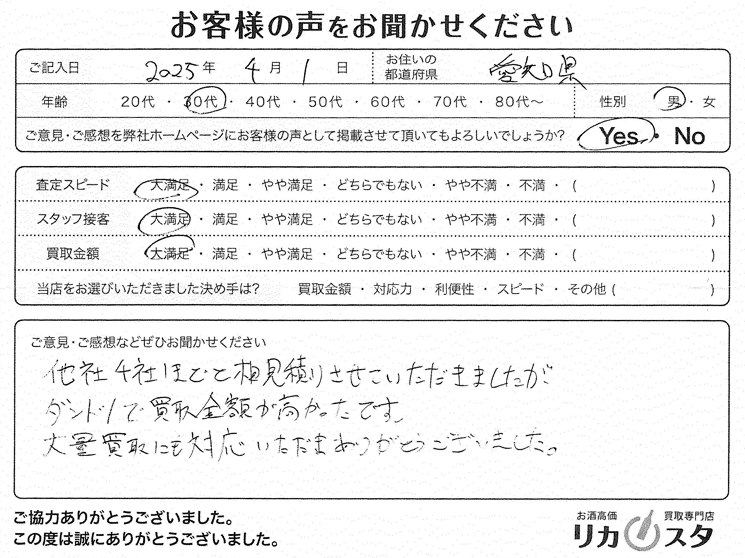 お客様の声をお聞かせください
ご記入日 2025年 4月 1日 お住いの都道府県 愛知県
年齢 20代・30代・40代・50代・60代・70代・80代〜 性別 男・女
ご意見・ご感想を弊社ホームページにお客様の声として掲載させて頂いてもよろしいでしょうか? Yes・No
査定スピード 大満足・満足・やや満足・どちらでもない・やや不満・不満・( )
スタッフ接客 大満足・満足・やや満足・どちらでもない・やや不満・不満・( )
買取金額 大満足・満足・やや満足・どちらでもない・やや不満・不満・( )
当店をお選びいただきました決め手は? 買取金額・対応力・利便性・スピード・その他( )
ご意見・ご感想などぜひお聞かせください
他社4社ほどと相見積りさせていただきましたが
ダントツで買取金額が高かったです。
大量買取にも対応いただきありがとうございました。
ご協力ありがとうございました。
この度は誠にありがとうございました。
お酒高価 買取専門店
リカスタ